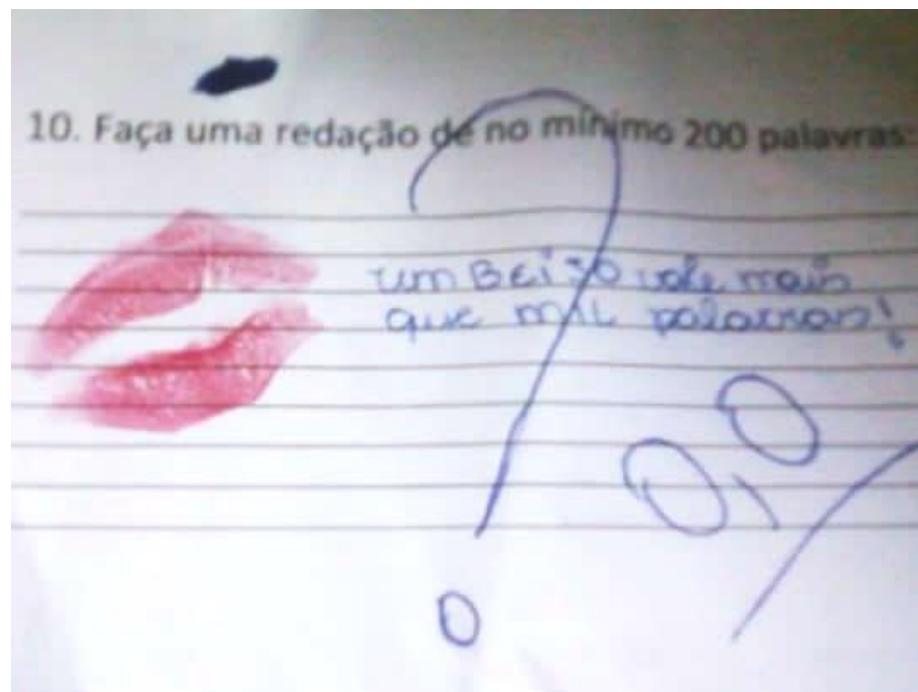 10. Faça uma redação de no mínimo 200 palavras:
um BEiJO vale mais
que miL palavras!
?
0,0